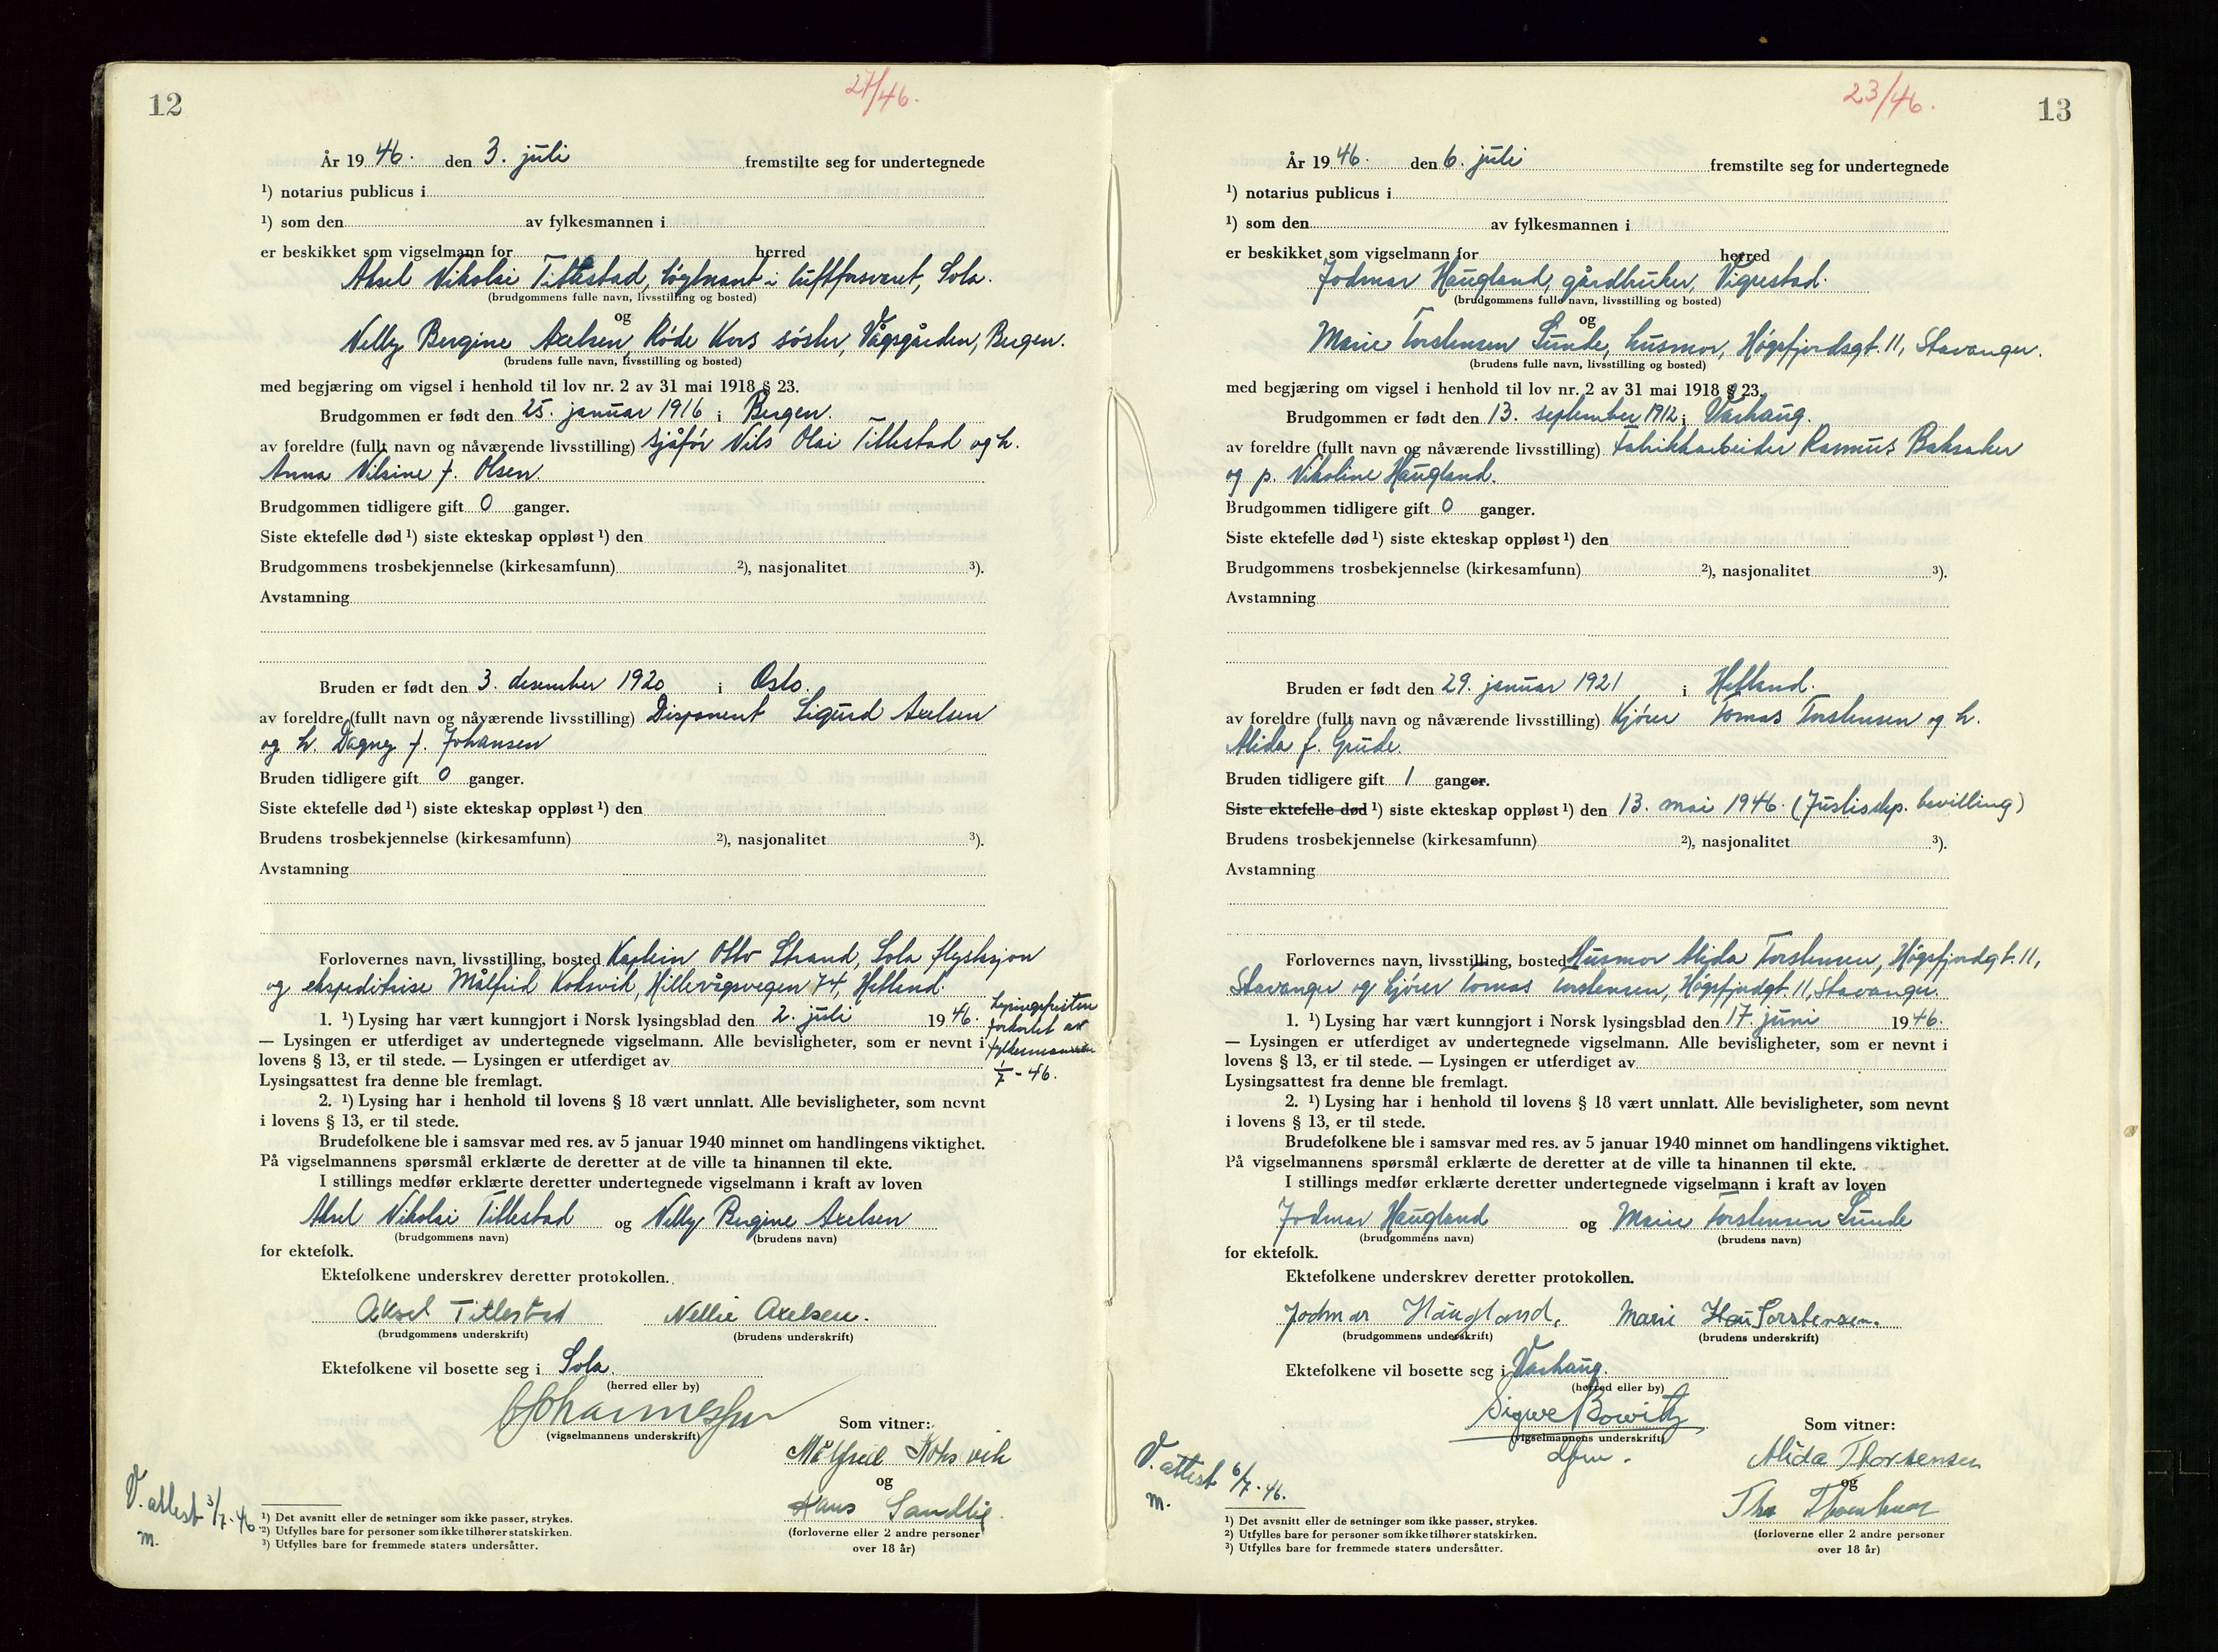 12
27/46.
År 19 46. den 3. juli fremstilte seg for undertegnede
¹) notarius publicus i
¹) som den av fylkesmannen i
er beskikket som vigselmann for herred
Aksel Nikolai Titlestad, løytnant i luftforsvaret, Sola.
(brudgommens fulle navn, livsstilling og bosted)
og
Nelly Bergine Axelsen, Røde Kors søster, Vågsgården, Bergen.
(brudens fulle navn, livsstilling og bosted)
med begjæring om vigsel i henhold til lov nr. 2 av 31 mai 1918 § 23.
Brudgommen er født den 25. januar 1916 i Bergen.
av foreldre (fullt navn og nåværende livsstilling) Sjåfør Nils Olai Titlestad og h.
Anna Nilsine f. Olsen.
Brudgommen tidligere gift 0 ganger.
Siste ektefelle død ¹) siste ekteskap oppløst ¹) den
Brudgommens trosbekjennelse (kirkesamfunn) ²), nasjonalitet ³).
Avstamning
Bruden er født den 3. desember 1920 i Oslo.
av foreldre (fullt navn og nåværende livsstilling) Disponent Sigurd Axelsen
og h. Dagny f. Johansen
Bruden tidligere gift 0 ganger.
Siste ektefelle død ¹) siste ekteskap oppløst ¹) den
Brudens trosbekjennelse (kirkesamfunn) ²), nasjonalitet ³).
Avstamning
Forlovernes navn, livsstilling, bosted Kaptein Otto Strand, Sola flystasjon
og ekspeditrise Målfrid Koksvik, Hillevågsvegen 74, Hetland.
1. ¹) Lysing har vært kunngjort i Norsk lysingsblad den 2. juli 19 46.
Lysingsfristen
forkortet av
fylkesmannen
1/7 - 46.
— Lysingen er utferdiget av undertegnede vigselmann. Alle bevisligheter, som er nevnt i
lovens § 13, er til stede. — Lysingen er utferdiget av
Lysingsattest fra denne ble fremlagt.
2. ¹) Lysing har i henhold til lovens § 18 vært unnlatt. Alle bevisligheter, som nevnt
i lovens § 13, er til stede.
Brudefolkene ble i samsvar med res. av 5 januar 1940 minnet om handlingens viktighet.
På vigselmannens spørsmål erklærte de deretter at de ville ta hinannen til ekte.
I stillings medfør erklærte deretter undertegnede vigselmann i kraft av loven
Aksel Nikolai Titlestad og Nelly Bergine Axelsen
(brudgommens navn) (brudens navn)
for ektefolk.
Ektefolkene underskrev deretter protokollen.
Aksel Titlestad Nellie Axelsen.
(brudgommens underskrift) (brudens underskrift)
Ektefolkene vil bosette seg i Sola.
(herred eller by)
(vigselmannens underskrift)
Som vitner:
Målfrid Koksvik
og
Hans Sandlie
(forloverne eller 2 andre personer
over 18 år)
V. attest 3/7-46
m.
¹) Det avsnitt eller de setninger som ikke passer, strykes.
²) Utfylles bare for personer som ikke tilhører statskirken.
³) Utfylles bare for fremmede staters undersåtter.
13
23/46.
År 19 46. den 6. juli fremstilte seg for undertegnede
¹) notarius publicus i
¹) som den av fylkesmannen i
er beskikket som vigselmann for herred
Jodmar Haugland, gårdbruker, Vigrestad.
(brudgommens fulle navn, livsstilling og bosted)
og
Marie Torstensen Sunde, husmor, Høgsfjordsgt. 11, Stavanger.
(brudens fulle navn, livsstilling og bosted)
med begjæring om vigsel i henhold til lov nr. 2 av 31 mai 1918 § 23.
Brudgommen er født den 13. september 1912 i Varhaug.
av foreldre (fullt navn og nåværende livsstilling) Fabrikkarbeider Rasmus Baksaker
og p. Nikoline Haugland.
Brudgommen tidligere gift 0 ganger.
Siste ektefelle død ¹) siste ekteskap oppløst ¹) den
Brudgommens trosbekjennelse (kirkesamfunn) ²), nasjonalitet ³).
Avstamning
Bruden er født den 29. januar 1921 i Hetland.
av foreldre (fullt navn og nåværende livsstilling) Kjører Tomas Torstensen og h.
Alida f. Grude.
Bruden tidligere gift 1 ganger.
Siste ektefelle død ¹) siste ekteskap oppløst ¹) den 13. mai 1946. (Justisdep. bevilling)
Brudens trosbekjennelse (kirkesamfunn) ²), nasjonalitet ³).
Avstamning
Forlovernes navn, livsstilling, bosted Husmor Alida Torstensen, Høgsfjordgt. 11,
Stavanger og kjører Tomas Torstensen, Høgsfjordgt. 11, Stavanger.
1. ¹) Lysing har vært kunngjort i Norsk lysingsblad den 17. juni 19 46.
— Lysingen er utferdiget av undertegnede vigselmann. Alle bevisligheter, som er nevnt i
lovens § 13, er til stede. — Lysingen er utferdiget av
Lysingsattest fra denne ble fremlagt.
2. ¹) Lysing har i henhold til lovens § 18 vært unnlatt. Alle bevisligheter, som nevnt
i lovens § 13, er til stede.
Brudefolkene ble i samsvar med res. av 5 januar 1940 minnet om handlingens viktighet.
På vigselmannens spørsmål erklærte de deretter at de ville ta hinannen til ekte.
I stillings medfør erklærte deretter undertegnede vigselmann i kraft av loven
Jodmar Haugland og Marie Torstensen Sunde
(brudgommens navn) (brudens navn)
for ektefolk.
Ektefolkene underskrev deretter protokollen.
Jodmar Haugland. Marie Torstensen.
(brudgommens underskrift) (brudens underskrift)
Ektefolkene vil bosette seg i Varhaug.
(herred eller by)
Sigwe Bowitz
(vigselmannens underskrift)
Som vitner:
Alida Thorstensen
og
(forloverne eller 2 andre personer
over 18 år)
V. attest 6/7-46.
m.
¹) Det avsnitt eller de setninger som ikke passer, strykes.
²) Utfylles bare for personer som ikke tilhører statskirken.
³) Utfylles bare for fremmede staters undersåtter.